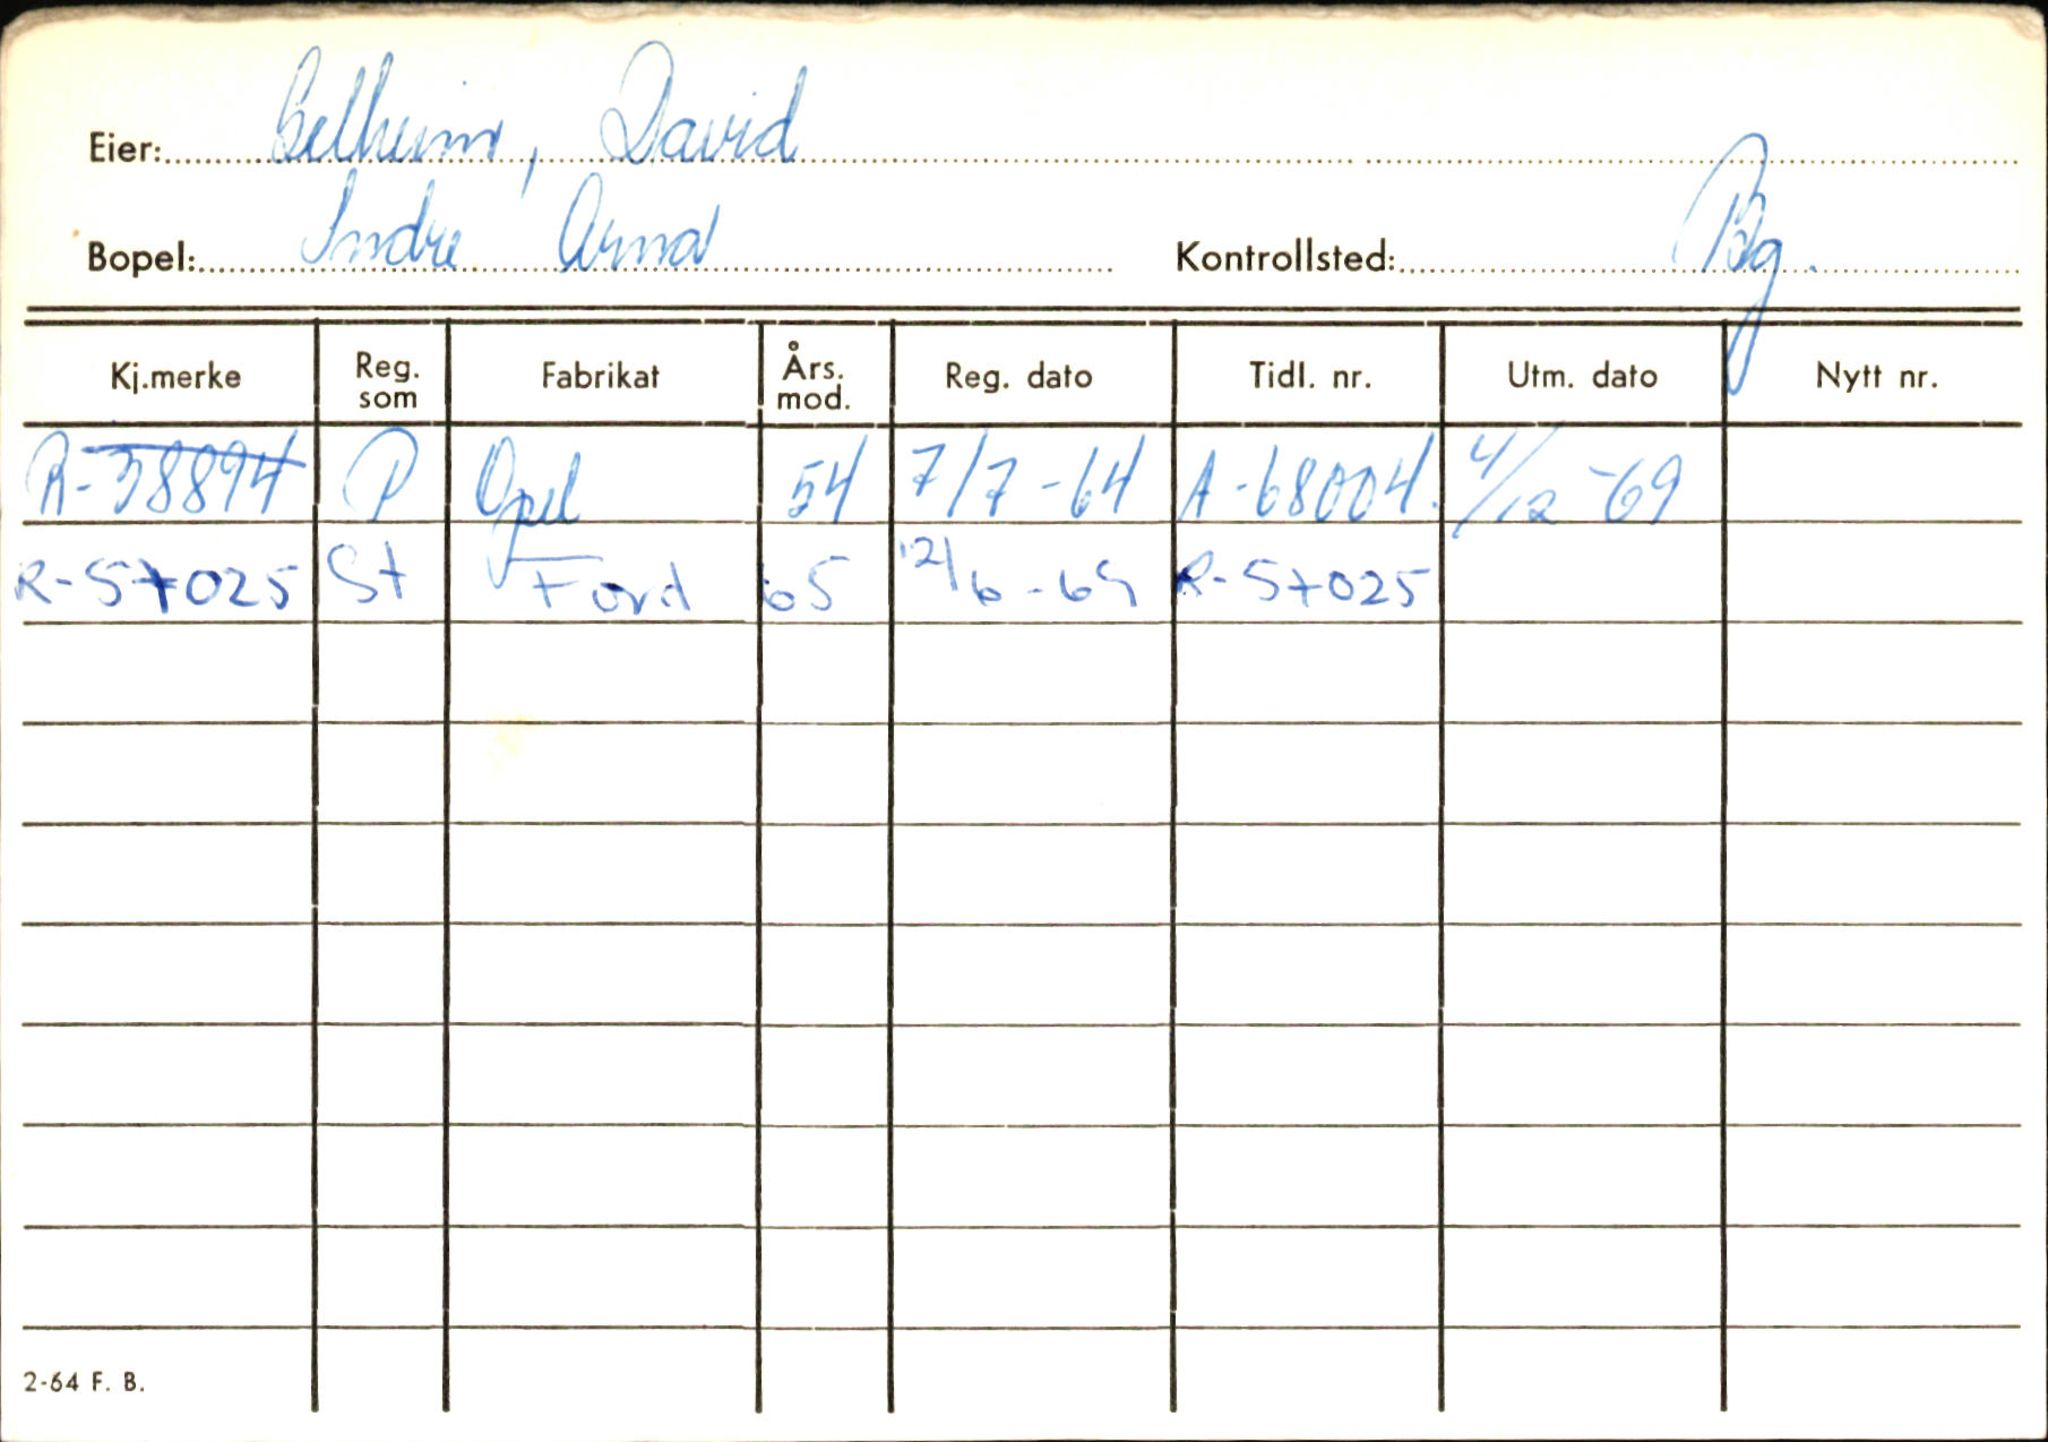 Eier: Gelheim, David
Bopel: Indre Arna Kontrollsted: Bg.
Kj.merke Reg. som Fabrikat Års. mod. Reg. dato Tidl. nr. Utm. dato Nytt nr.
R-38894 P Opel 54 7/7-64 A-68004. 4/12-69
R-57025 St Ford 65 12/6-69 R-57025
2-64 F. B.